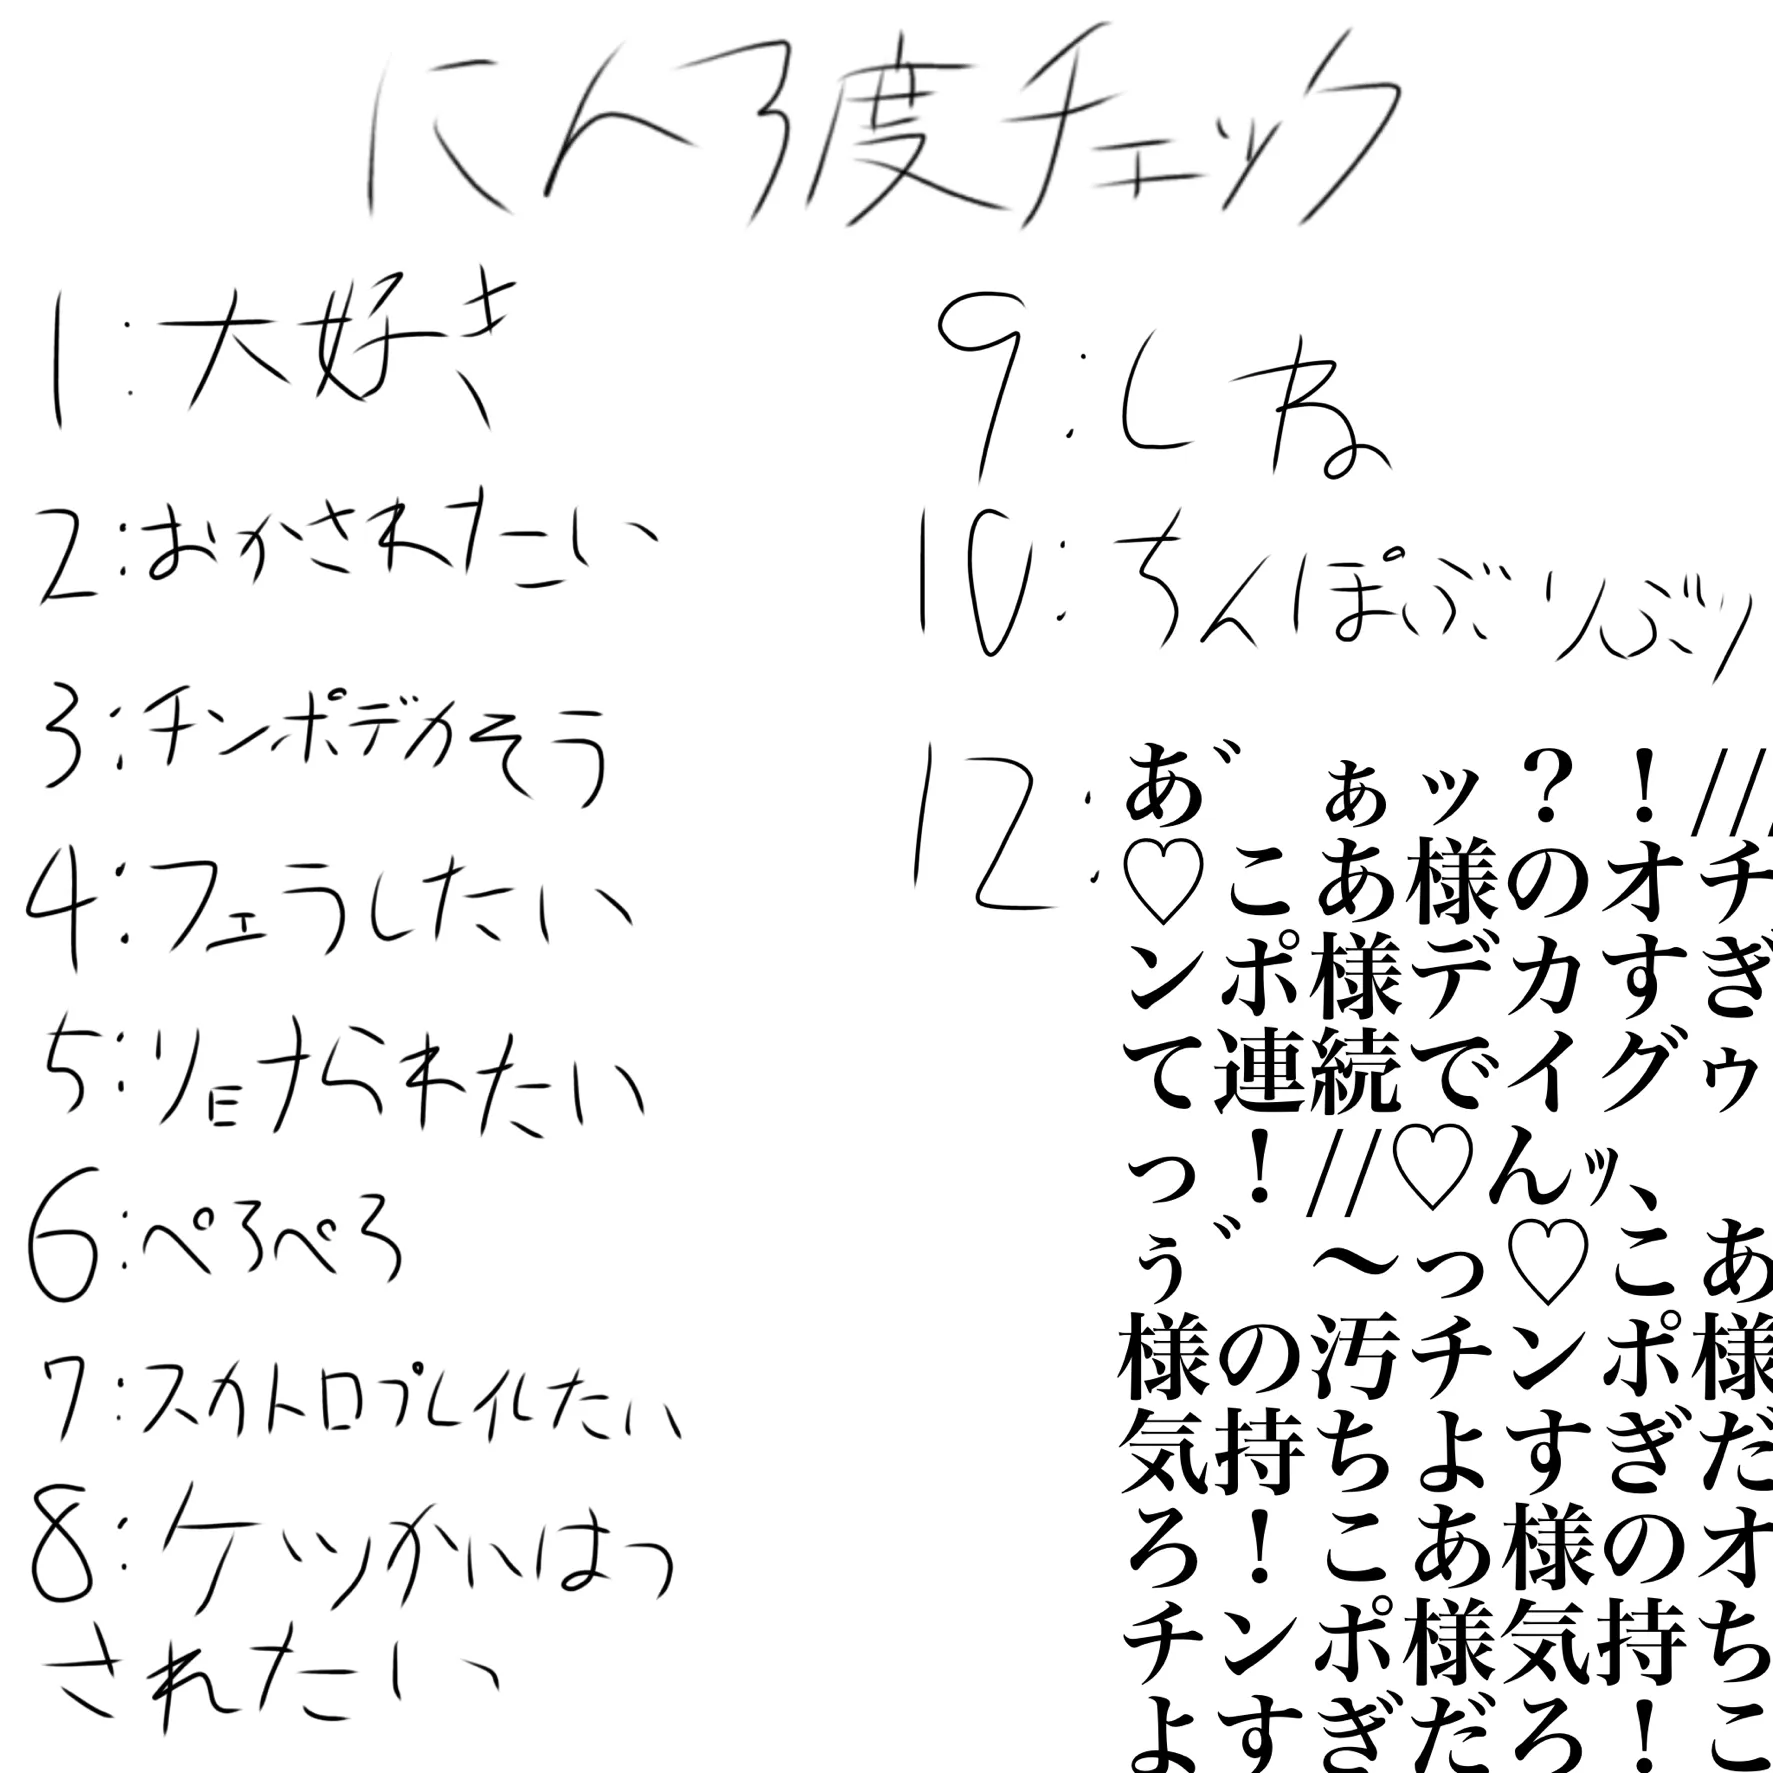 にんろ度チェック
1:大好き
2:おかされたい
3:チンポデカそう
4:フェラしたい
5:リョナられたい
6:ぺろぺろ
7:スカトロプレイしたい
8:ケツかいはつ
されたい
9:しね
10:ちんぽぶりぶり
12:あ゛ぁッ?!//
♡こあ様のオチ
ンポ様デカすぎ
て連続でイグゥ
っ!//♡んッ、
ぅ゛〜っ♡こあ
様の汚チンポ様
気持ちよすぎだ
ろ!こあ様のオ
チンポ様気持ち
よすぎだろ!こ